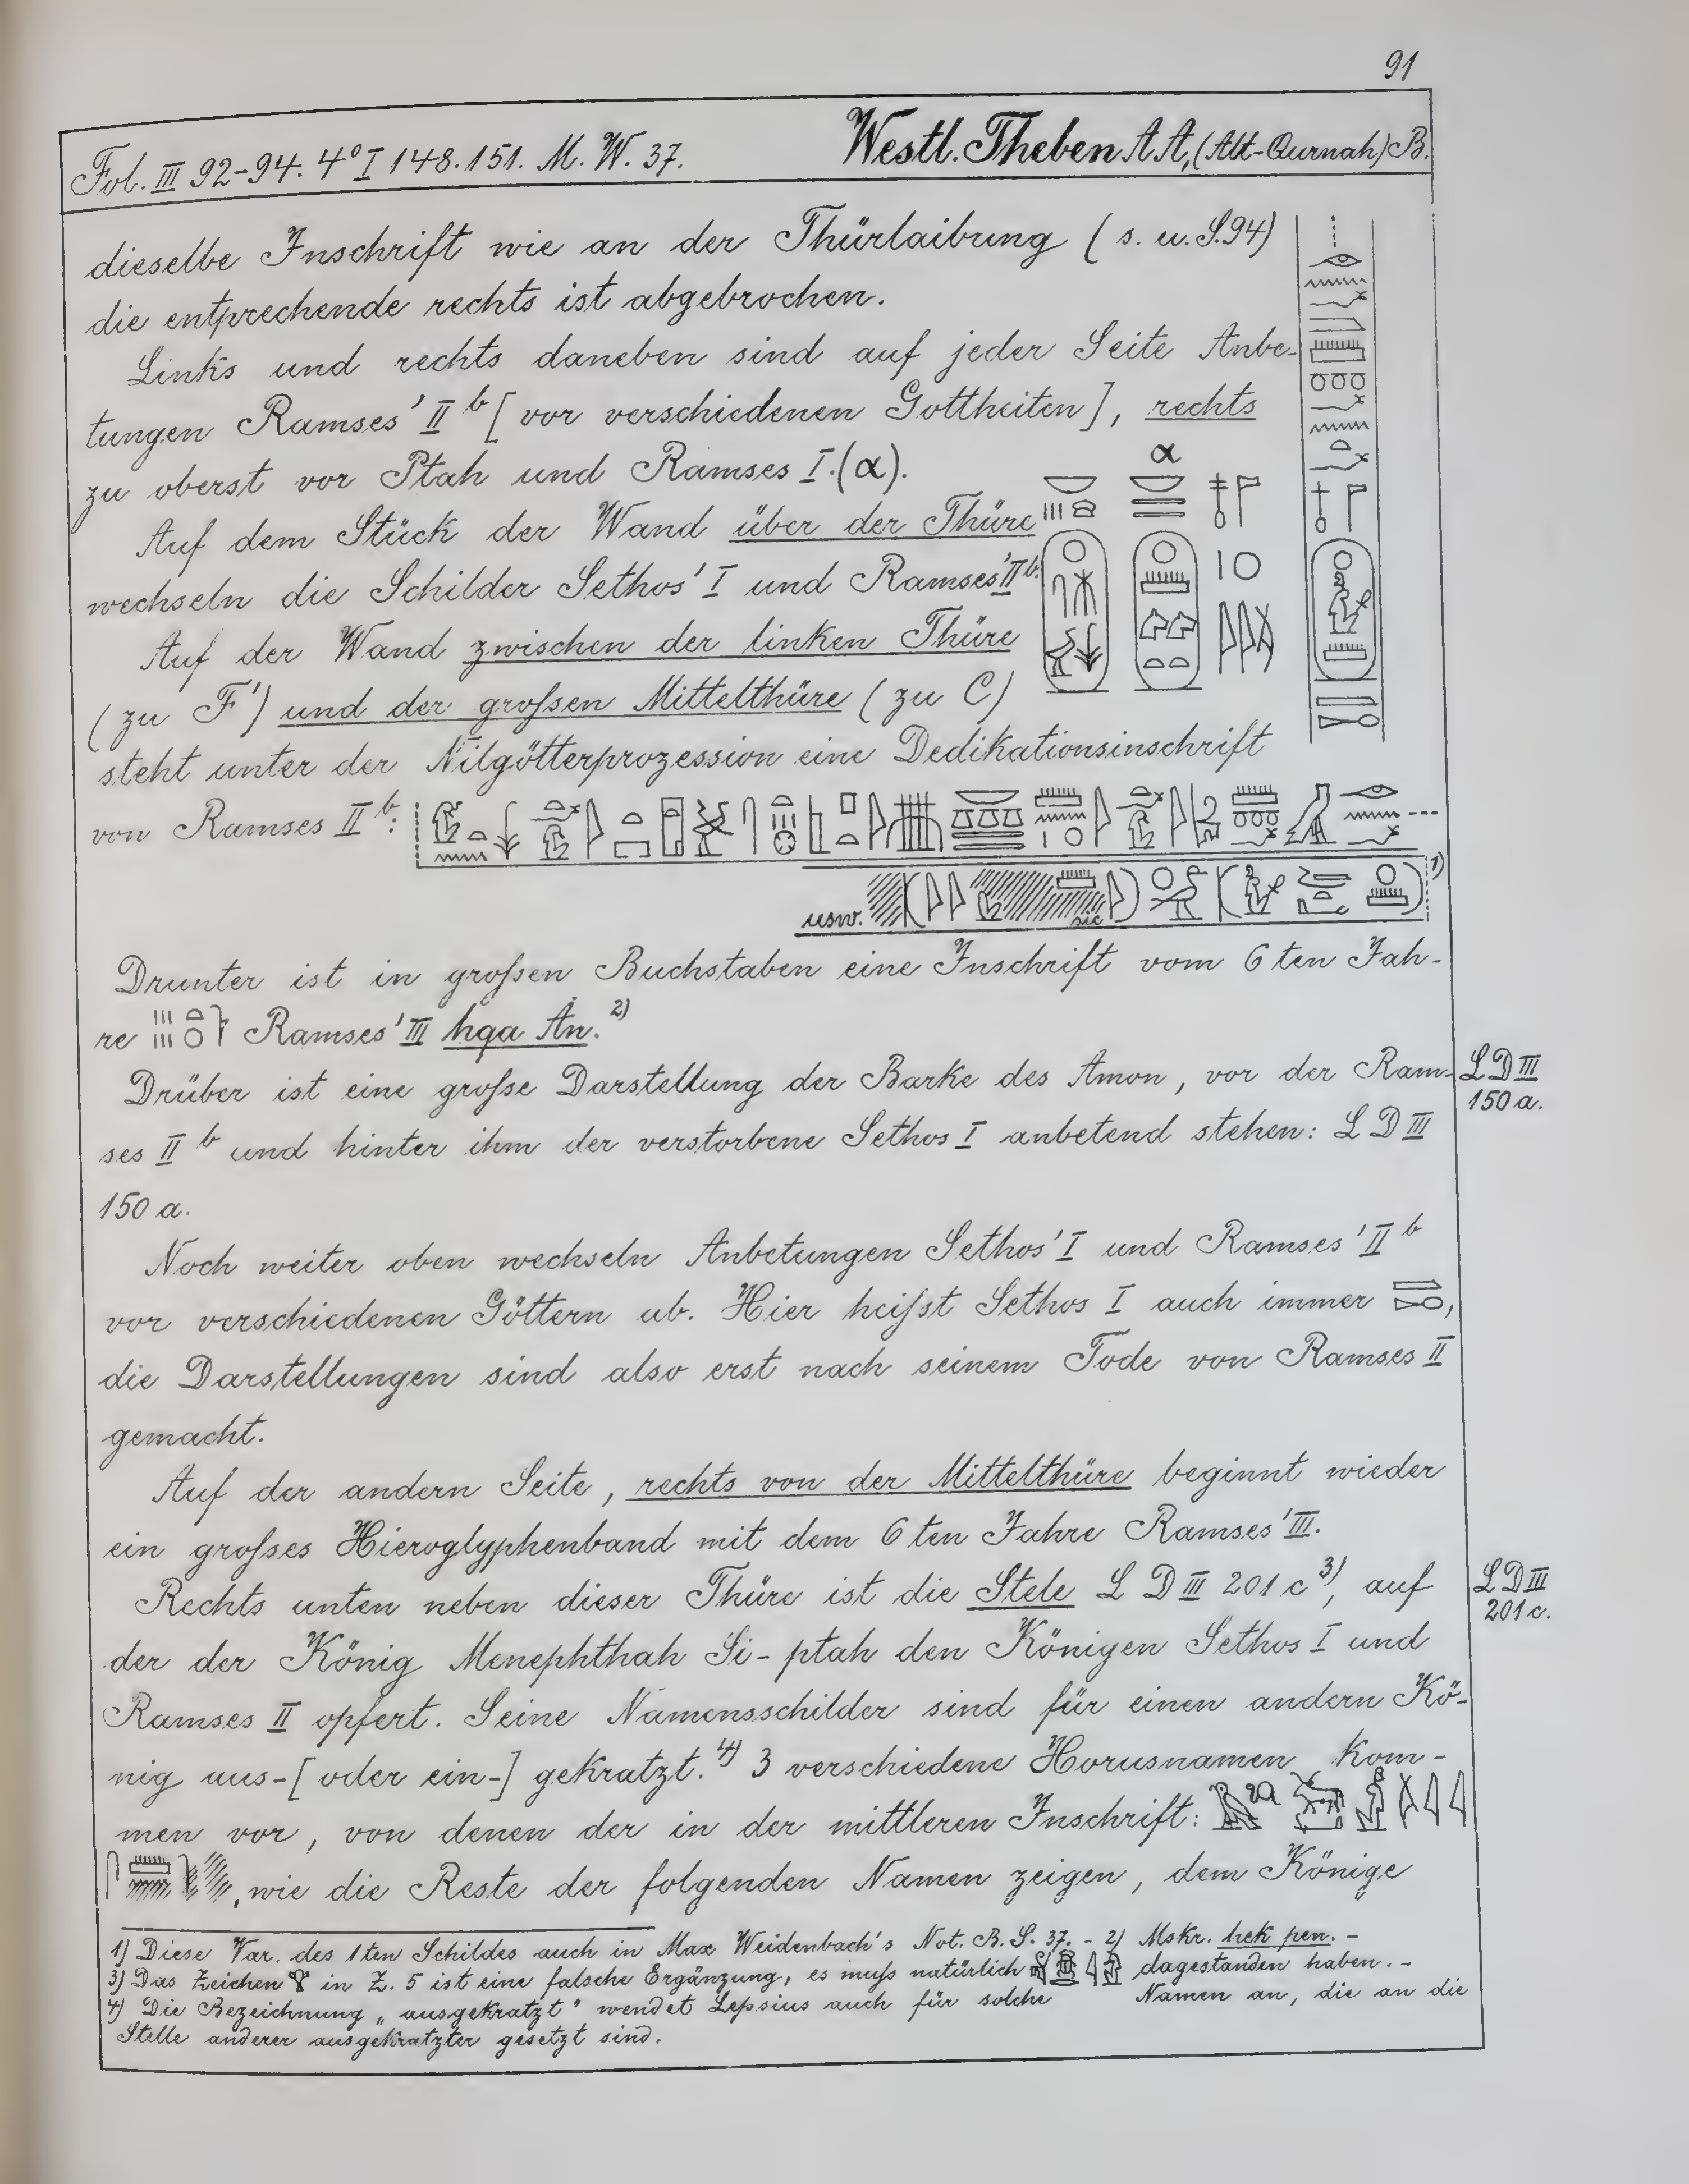 91
Fol. III 92-94. 4° I 148.151. M. W. 37. Westl. Theben AA, (Alt-Qurnah) B.
dieselbe Inschrift wie an der Thürlaibung (s. u. S. 94)
die entprechende rechts ist abgebrochen.
Links und rechts daneben sind auf jeder Seite Anbe-
tungen Ramses' II b [vor verschiedenen Gottheiten], rechts
zu oberst vor Ptah und Ramses I. (α).
α
Auf dem Stück der Wand über der Thüre
wechseln die Schilder Sethos' I und Ramses' II b.
Auf der Wand zwischen der linken Thüre
(zu F') und der großen Mittelthüre (zu C)
steht unter der Nilgötterprozession eine Dedikationsinschrift
von Ramses II b:
1)
usw. sic
Drunter ist in großen Buchstaben eine Inschrift vom 6 ten Jah-
re Ramses' III hqa Ȧn. 2)
Drüber ist eine große Darstellung der Barke des Amon, vor der Ram-
LD III
150 a.
ses II b und hinter ihm der verstorbene Sethos I anbetend stehen: LD III
150 a.
Noch weiter oben wechseln Anbetungen Sethos' I und Ramses' II b
vor verschiedenen Göttern ab. Hier heißt Sethos I auch immer ,
die Darstellungen sind also erst nach seinem Tode von Ramses II
gemacht.
Auf der andern Seite, rechts von der Mittelthüre beginnt wieder
ein großes Hieroglyphenband mit dem 6 ten Jahre Ramses' III.
Rechts unten neben dieser Thüre ist die Stele LD III 201 c 3), auf
LD III
201 c.
der der König Menephthah Si-ptah den Königen Sethos I und
Ramses II opfert. Seine Namensschilder sind für einen andern Kö-
nig aus-[oder ein-] gekratzt. 4) 3 verschiedene Horusnamen kom-
men vor, von denen der in der mittleren Inschrift:
, wie die Reste der folgenden Namen zeigen, dem Könige
1) Diese Var. des 1ten Schildes auch in Max Weidenbach's Not. B. S. 37. - 2) Mskr. hek pen. -
3) Das Zeichen in Z. 5 ist eine falsche Ergänzung, es muß natürlich dagestanden haben. -
4) Die Bezeichnung „ausgekratzt" wendet Lepsius auch für solche Namen an, die an die
Stelle anderer ausgekratzter gesetzt sind.